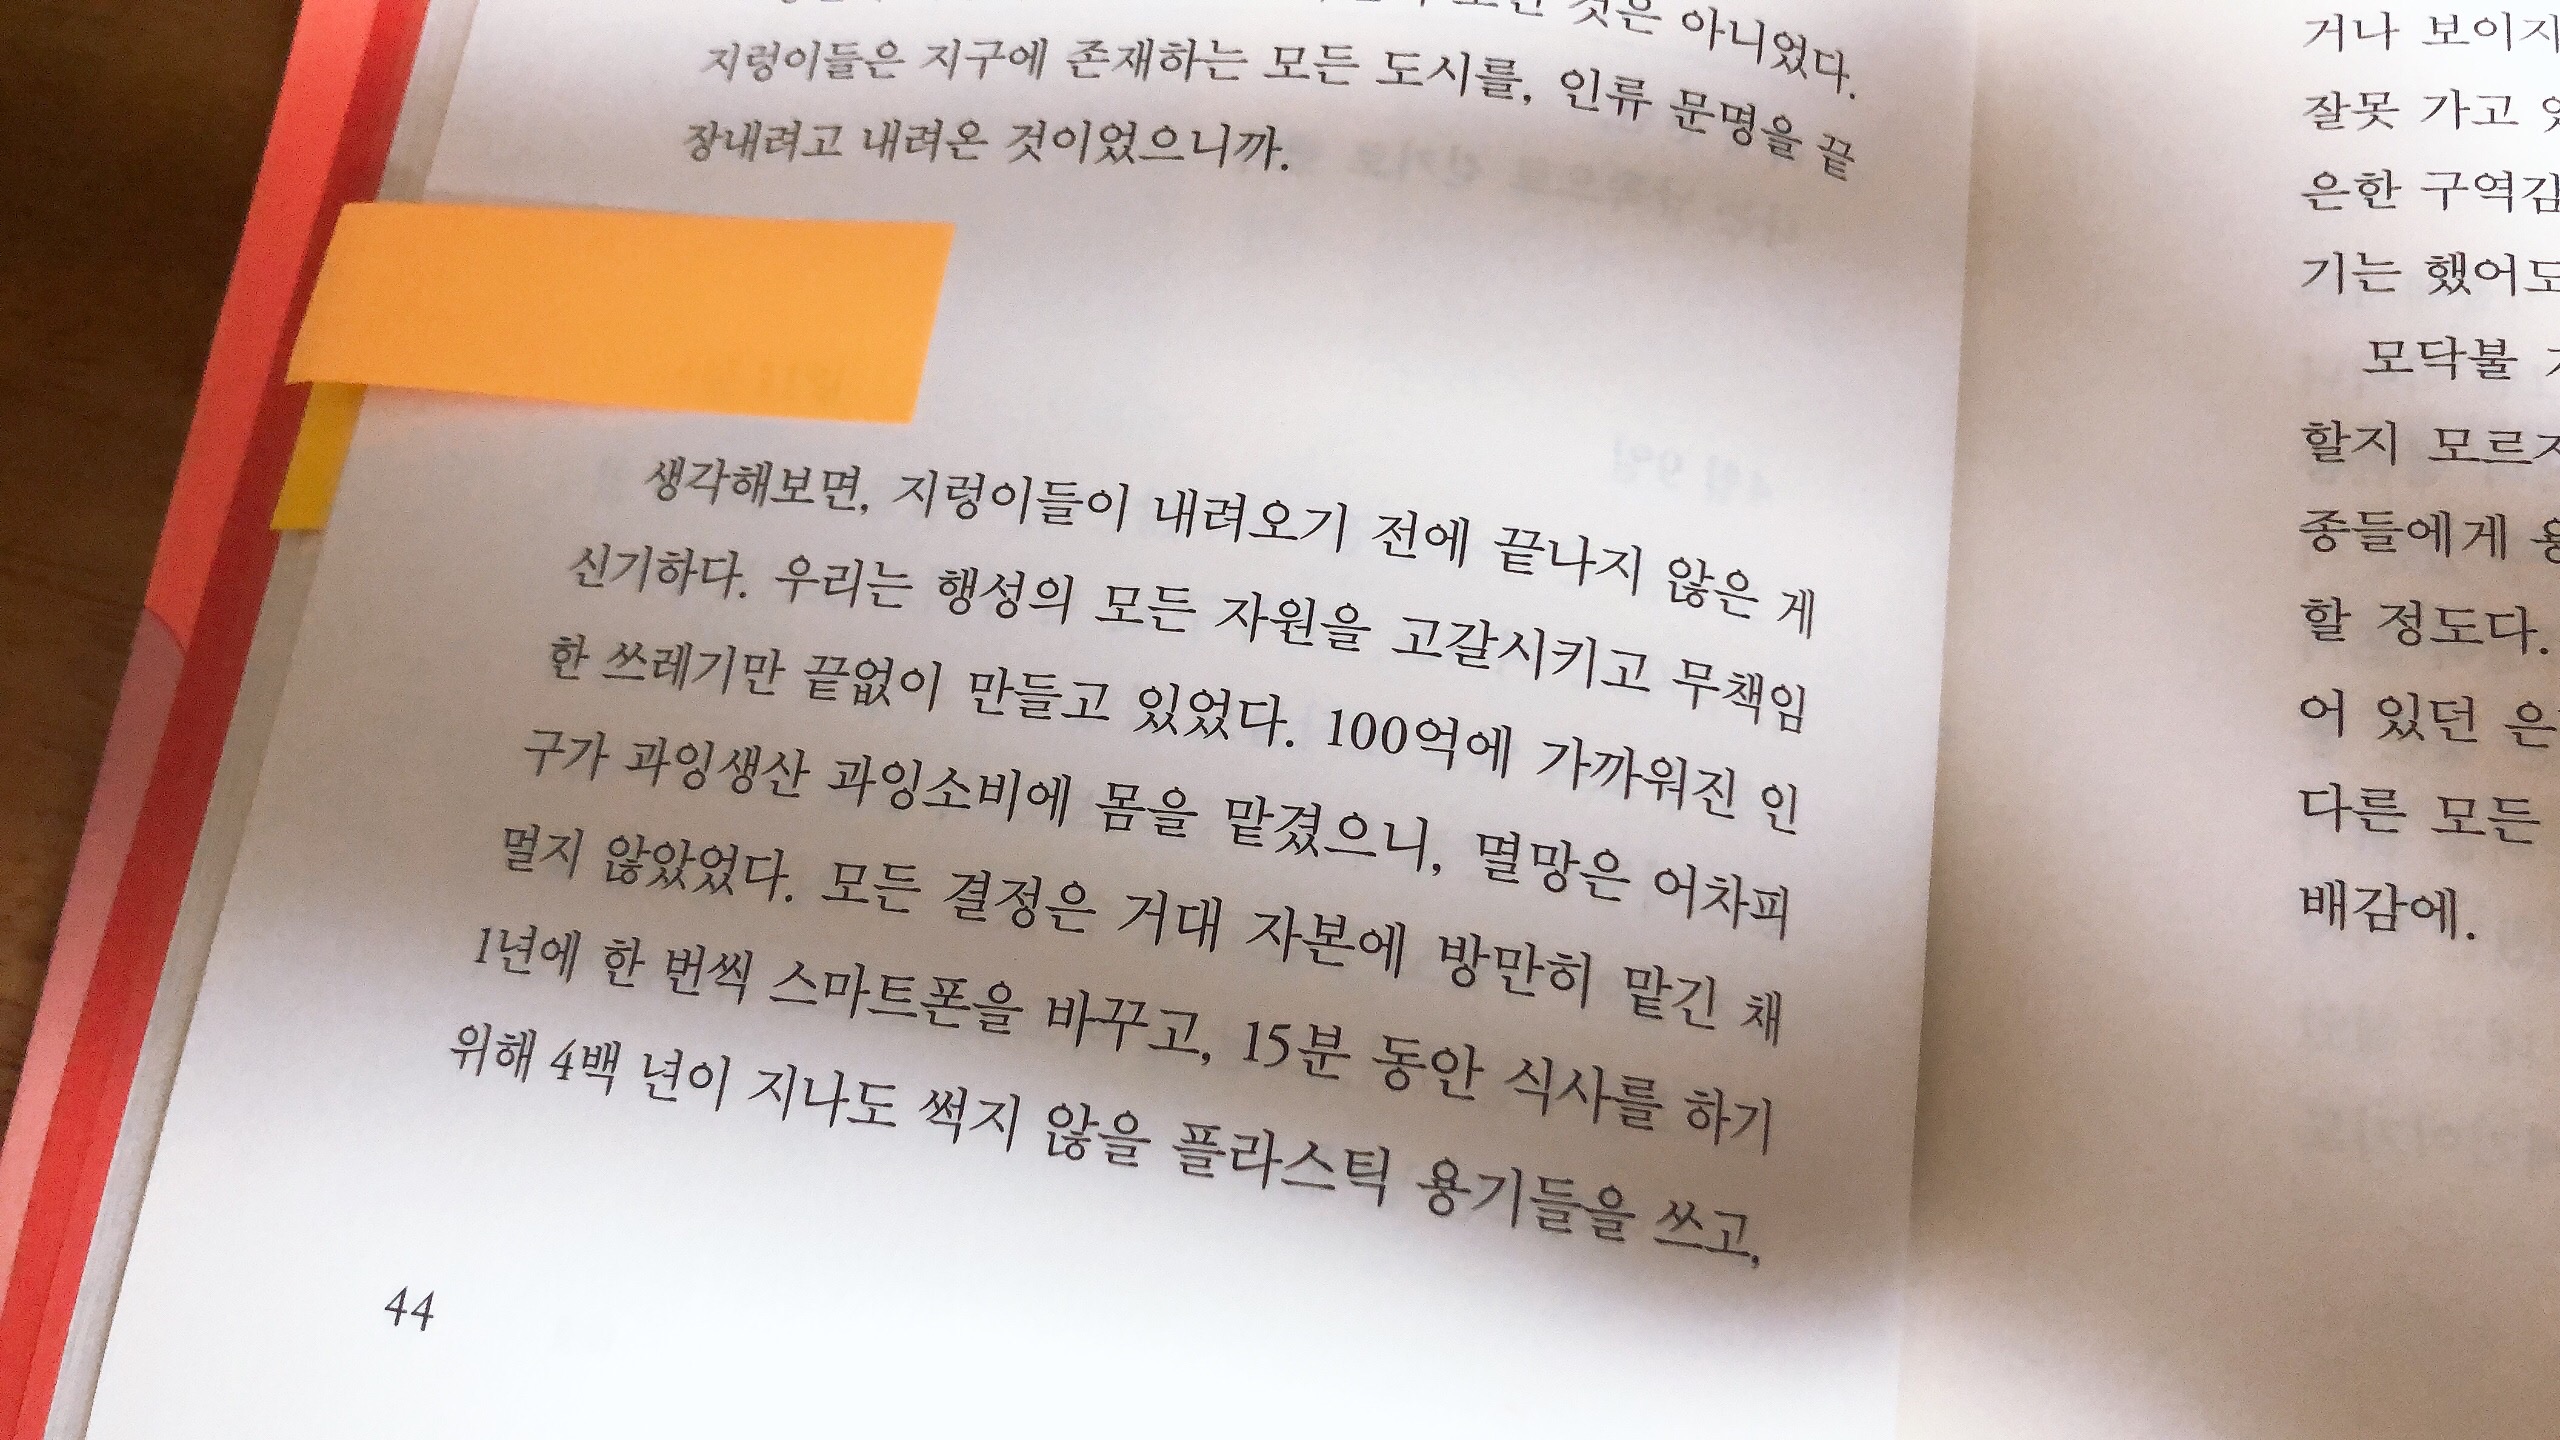 것은 아니었다.
지렁이들은 지구에 존재하는 모든 도시를, 인류 문명을 끝
장내려고 내려온 것이었으니까.
생각해보면, 지렁이들이 내려오기 전에 끝나지 않은 게
신기하다. 우리는 행성의 모든 자원을 고갈시키고 무책임
한 쓰레기만 끝없이 만들고 있었다. 100억에 가까워진 인
구가 과잉생산 과잉소비에 몸을 맡겼으니, 멸망은 어차피
멀지 않았었다. 모든 결정은 거대 자본에 방만히 맡긴 채
1년에 한 번씩 스마트폰을 바꾸고, 15분 동안 식사를 하기
위해 4백 년이 지나도 썩지 않을 플라스틱 용기들을 쓰고,
44
거나 보이지
잘못 가고
은한 구역감
기는 했어도
모닥불
할지 모르지
종들에게
할 정도다.
어 있던 은
다른 모든
배감에.